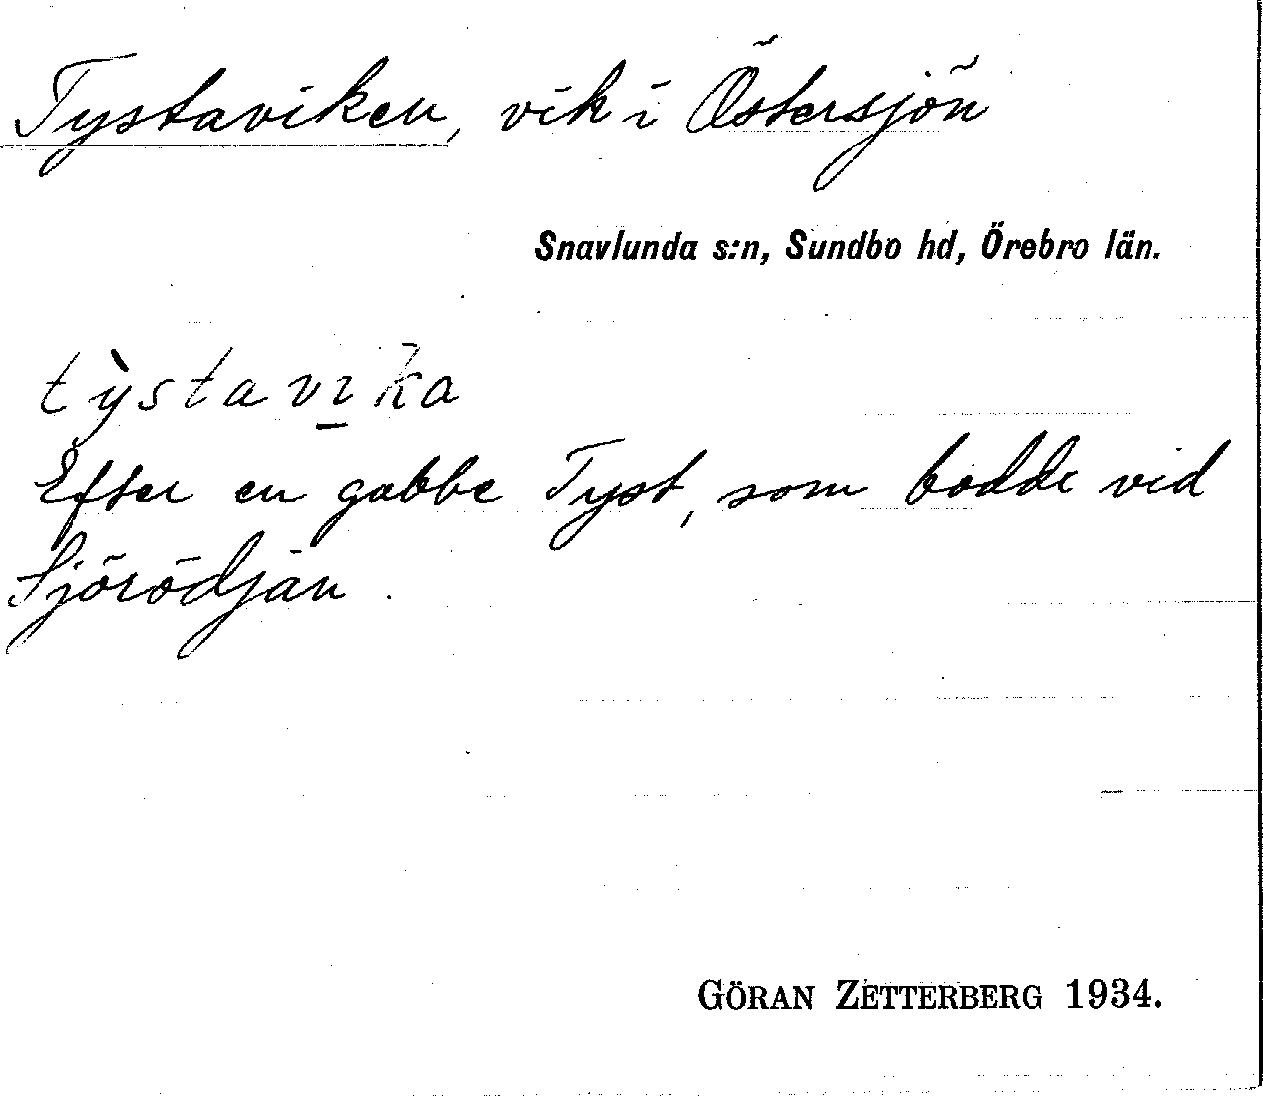 Tystaviken, vik i Östersjön
Snavlunda s:n, Sundbo hd, Örebro län.
tỳstavı̲ka
Efter en gubbe Tyst, som bodde vid
Sjörödjan.
GÖRAN ZETTERBERG 1934.